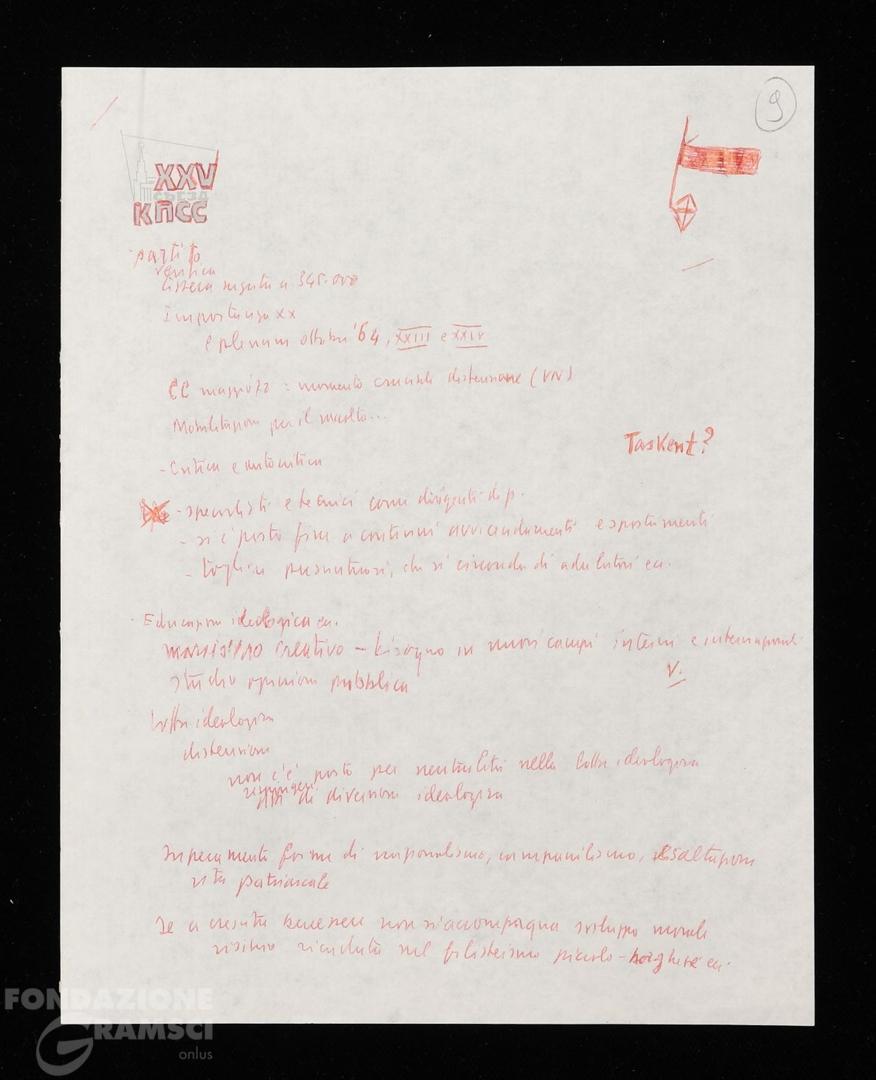 9
XXV
СЪЕЗД
КПСС
partito
verifica
tessera 345.000
Importanza XX
e plenum ottobre '64, XXIII e XXIV
CC : momento cruciale distensione (VN)
Mobilitazione per il
Taskent?
- Critica e autocritica
- specialisti e tecnici come dirigenti di p.
- si è posto fine a continui avvicendamenti e spostamenti
- togliere presuntuosi, chi si circonda di adulatori ecc.
- Educazione ideologica ecc.
marxismo creativo - bisogno in nuovi campi interni e internazionali
V.
studio opinione pubblica
Lotta ideologica
distensione
non c'è posto per neutralità nella lotta ideologica
respingere di diversione ideologica
forme di nazionalismo, campanilismo, esaltazione
vita patriarcale
Se a crescita benessere non si accompagna sviluppo morale
rischio ricaduta nel filisteismo piccolo-borghese ecc.
FONDAZIONE
GRAMSCI
onlus